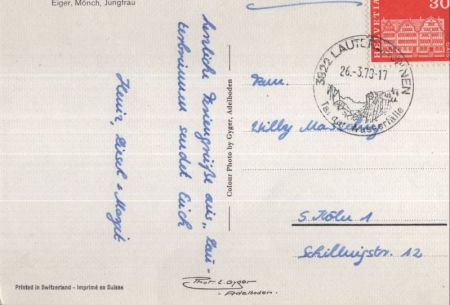 Eiger, Mönch, Jungfrau
HELVETIA
30
3822 LAUTERBRUNNEN
26.-3.70-17
Tal der Wasserfälle
Herzliche Feriengrüße aus "Lau-
terbrunnen sendet Euch
Heinz, Margit
Colour Photo by Gyger, Adelboden
Fam.
Willy
5. Köln 1
Schillingstr. 12
Printed in Switzerland - Imprimé en Suisse
Phot. E. Gyger
- Adelboden -